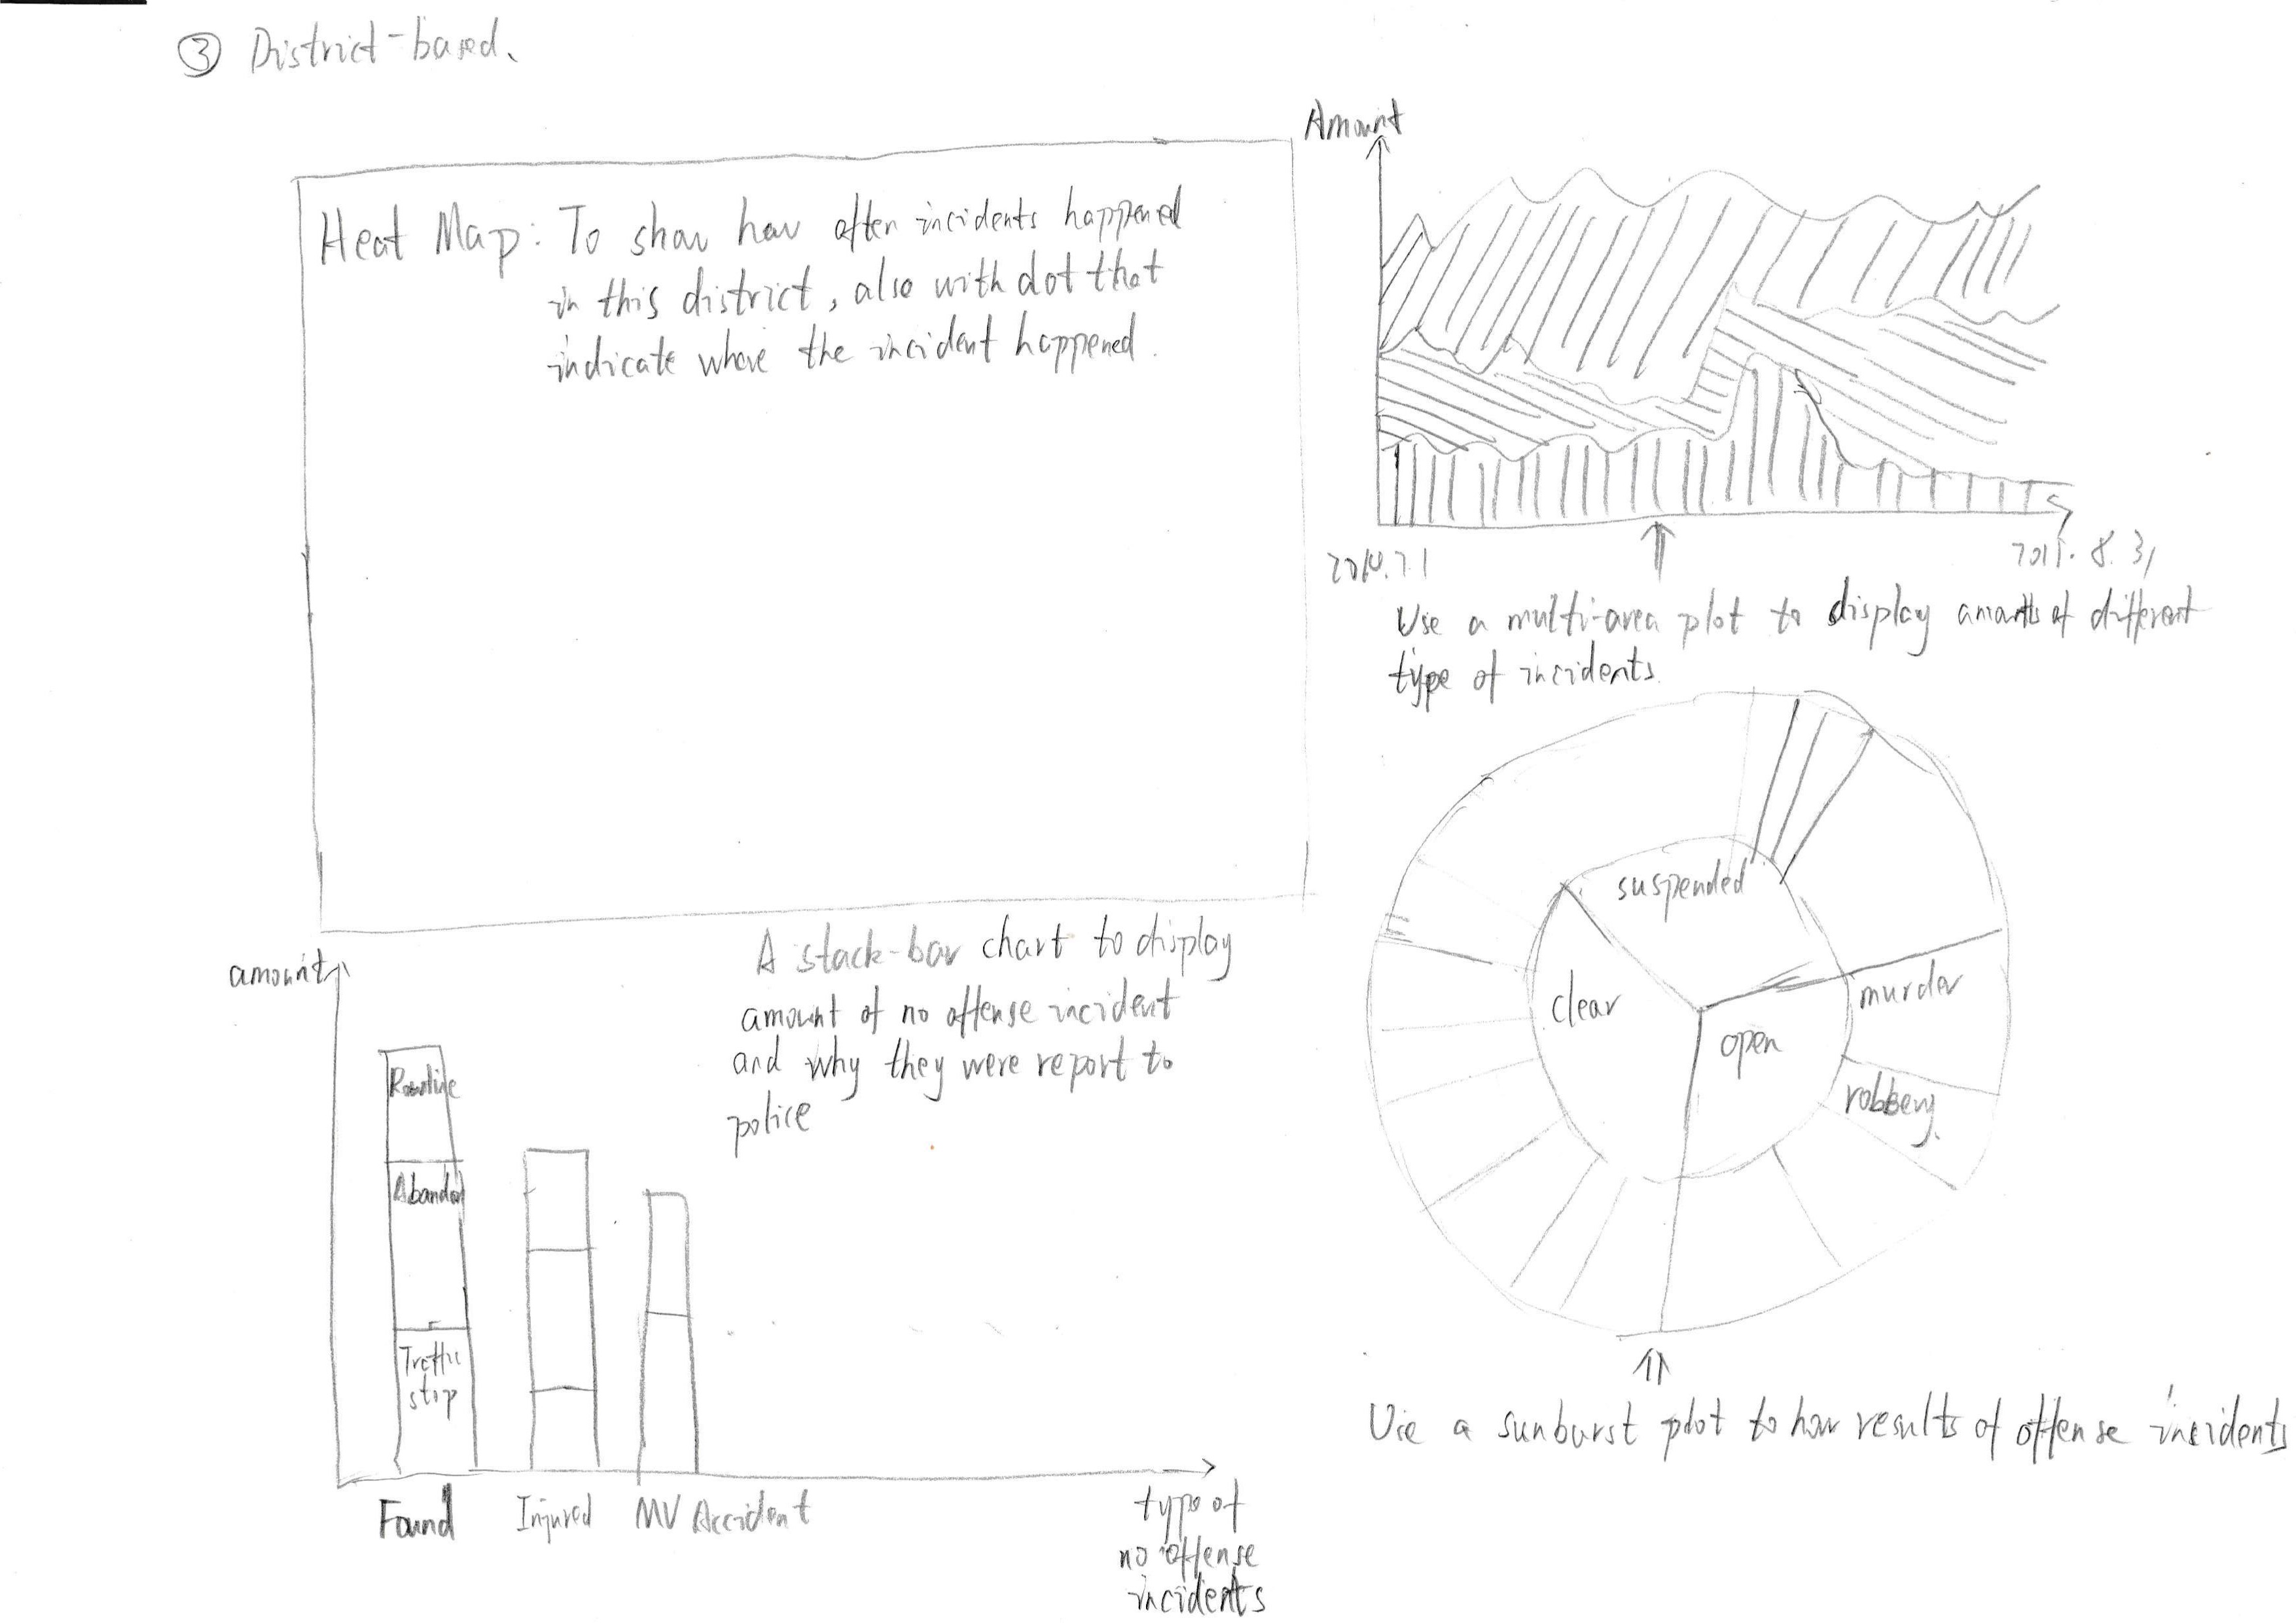 ③ District-based.
Heat Map: To show how often incidents happened
in this district, also with dot that
indicate where the incident happened.
Amount
Use a multi-area plot to display amounts of different
type of incidents.
suspended
clear
open
murder
robbery.
Use a sunburst plot to how results of offense incidents
amount
A stack-bar chart to display
amount of no offense incident
and why they were report to
police
Abandon
Traffic
stop
Found
Injured
MV Accident
type of
no offense
incidents